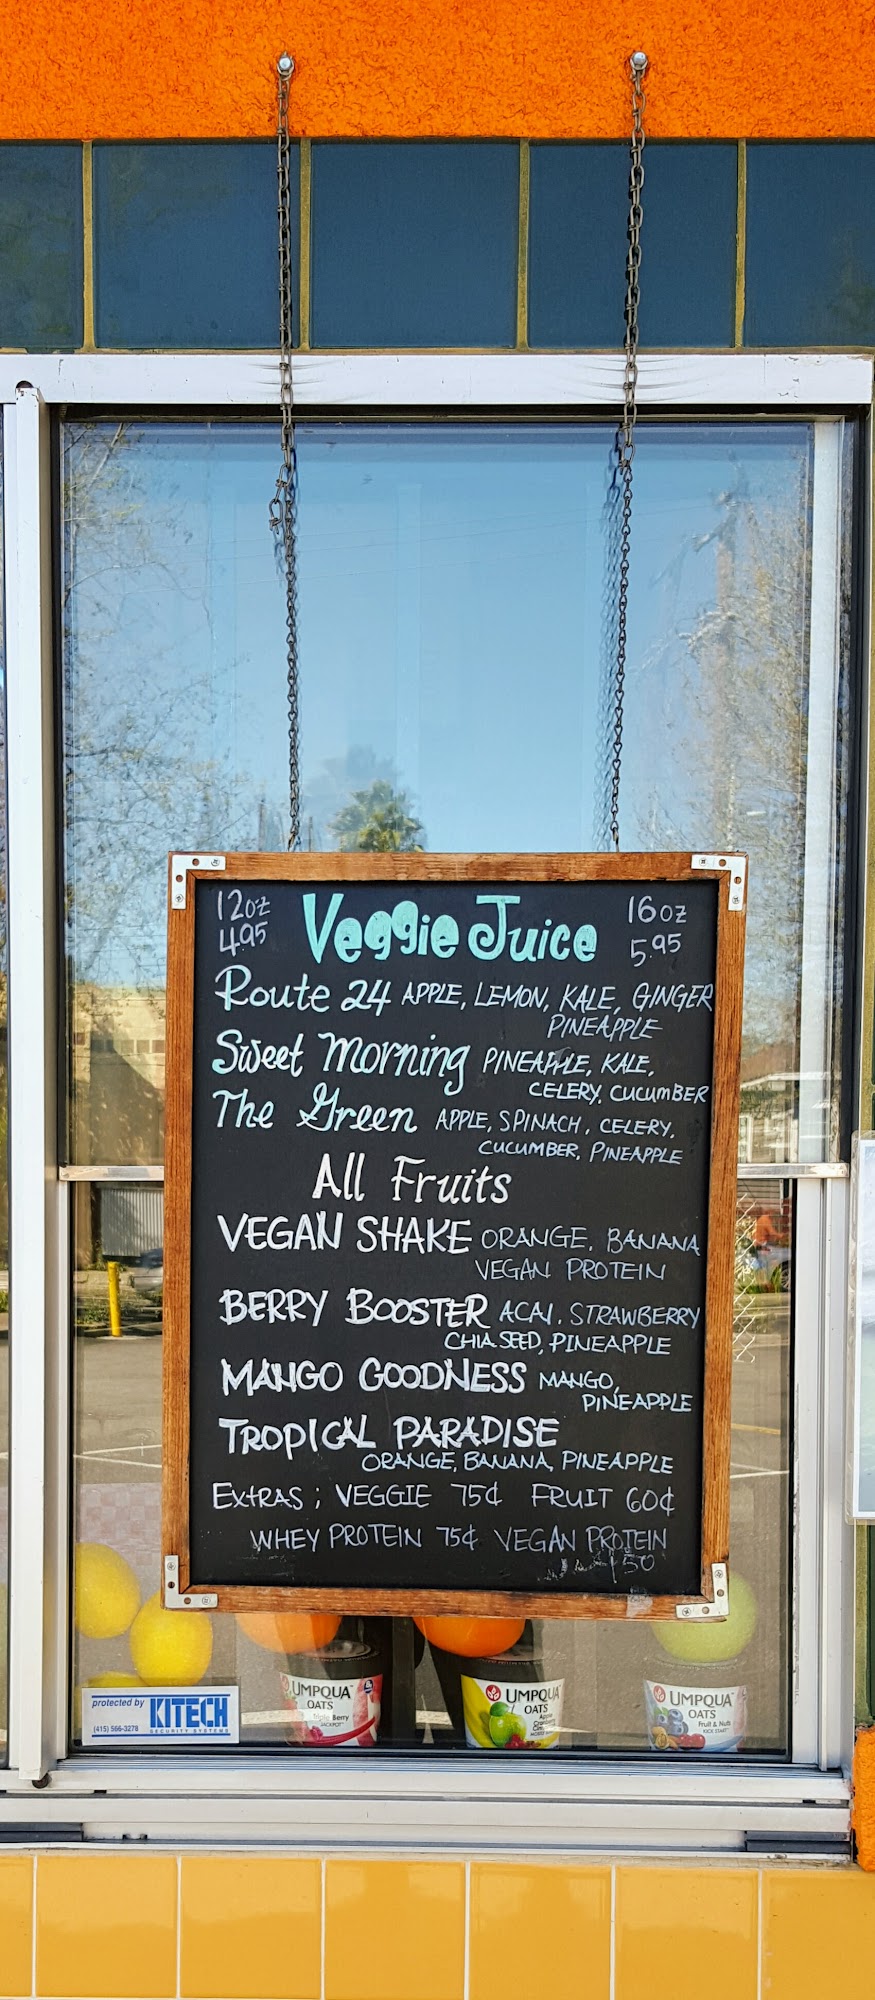 12oz Veggie Juice 16oz
4.95 5.95
Route 24 APPLE, LEMON, KALE, GINGER
PINEAPPLE
Sweet Morning PINEAPPLE, KALE,
CELERY, CUCUMBER
The Green APPLE, SPINACH, CELERY,
CUCUMBER, PINEAPPLE
All Fruits
VEGAN SHAKE ORANGE, BANANA
VEGAN PROTEIN
BERRY BOOSTER ACAI, STRAWBERRY
CHIA SEED, PINEAPPLE
MANGO GOODNESS MANGO,
PINEAPPLE
TROPICAL PARADISE
ORANGE, BANANA, PINEAPPLE
EXTRAS; VEGGIE 75¢ FRUIT 60¢
WHEY PROTEIN 75¢ VEGAN PROTEIN
protected by KITECH
(415) 566-3278 SECURITY SYSTEMS
UMPQUA
OATS
Triple Berry
JACKPOT
UMPQUA
OATS
Apple
UMPQUA
OATS
Fruit & Nuts
KICK START